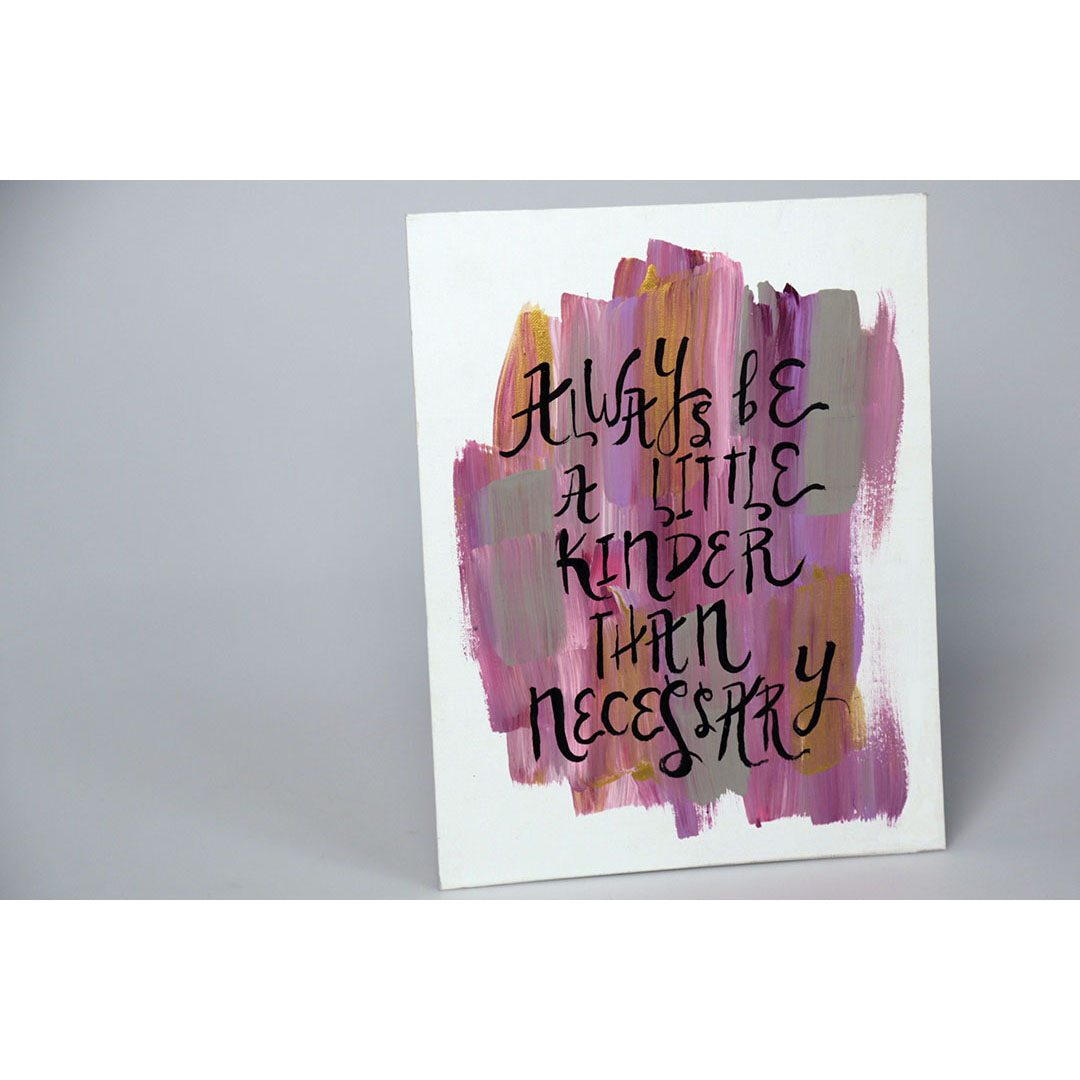 ALWAYS BE
A LITTLE
KINDER
THAN
NECESSARY